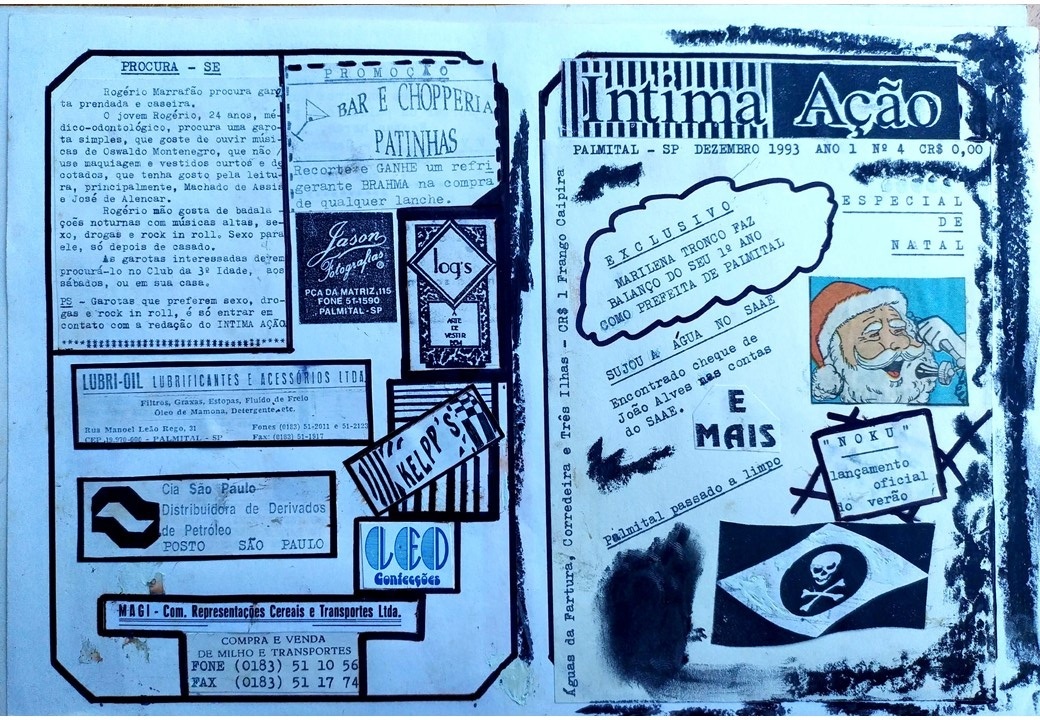 PROCURA - SE
Rogério Marrafão procura garo
ta prendada e caseira.
O jovem Rogério, 24 anos, mé-
dico-odontológico, procura uma garo-
ta simples, que goste de ouvir músi-
cas de Oswaldo Montenegro, que não
use maquiagem e vestidos curtos e de
cotados, que tenha gosto pela leitu-
ra, principalmente, Machado de Assis
e José de Alencar.
Rogério mão gosta de badala -
ções noturnas com músicas altas, se-
xo, drogas e rock in roll. Sexo para
ele, só depois de casado.
As garotas interessadas devem
procurá-lo no Club da 3ª Idade, aos
sábados, ou em sua casa.
PS - Garotas que preferem sexo, dro-
gas e rock in roll, é só entrar em
contato com a redação do INTIMA AÇÃO
PROMOÇÃO
BAR E CHOPPERIA
PATINHAS
Recorte e GANHE um refri
gerante BRAHMA na compra
de qualquer lanche.
Jason
Fotografias
PÇA DA MATRIZ, 115
FONE 51-1590
PALMITAL-SP
log's
ARTE
DE
VESTIR
BEM
LUBRI-OIL LUBRIFICANTES E ACESSÓRIOS LTDA
Filtros, Graxas, Estopas, Fluido de Freio
Óleo de Mamona, Detergente, etc.
Rua Manoel Leão Rego, 21 Fones (0183) 51-2011 e 51-2123
CEP 19.970-000 - PALMITAL - SP Fax: (0183) 51-1917
KELPP'S
Cia São Paulo
Distribuidora de Derivados
de Petróleo
POSTO SÃO PAULO
LEO
Confecções
MAGI - Com. Representações Cereais e Transportes Ltda.
COMPRA E VENDA
DE MILHO E TRANSPORTES
FONE (0183) 51 10 56
FAX (0183) 51 17 74
Íntima Ação
PALMITAL - SP DEZEMBRO 1993 ANO 1 Nº 4 CR$ 0,00
Águas da Fartura, Corredeira e Três Ilhas - CR$ 1 Frango Caipira
EXCLUSIVO
MARILENA TRONCO FAZ
BALANÇO DO SEU 1º ANO
COMO PREFEITA DE PALMITAL
ESPECIAL
DE
NATAL
SUJOU A ÁGUA NO SAAE
Encontrado cheque de
João Alves nas contas
do SAAE.
E
MAIS
"NOKU"
lançamento
oficial
do verão
Palmital passado a limpo